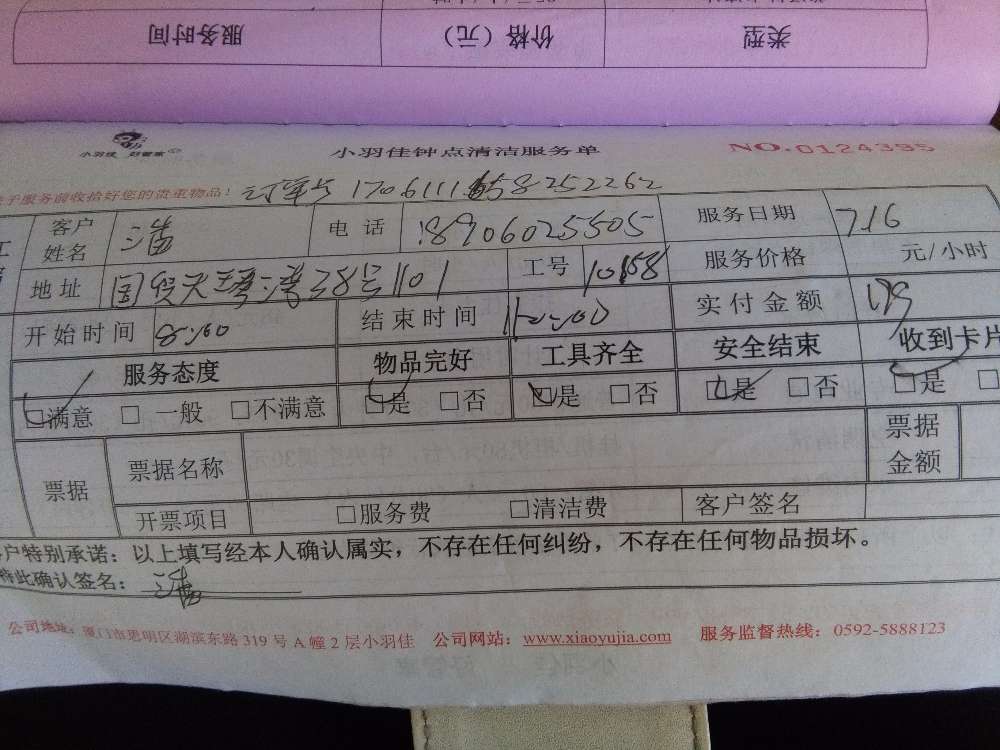 类型 价格（元） 服务时间
小羽佳 好管家
小羽佳钟点清洁服务单 NO.0124395
于服务前收拾好您的贵重物品！ 订单号
客户姓名 电话 18906025505 服务日期 7.16
地址 工号 服务价格 元/小时
开始时间 8:00 结束时间 实付金额
服务态度 物品完好 工具齐全 安全结束 收到卡片
□满意 □一般 □不满意 □是 □否 □是 □否 □是 □否 □是 □
票据 票据名称 票据金额
开票项目 □服务费 □清洁费 客户签名
户特别承诺：以上填写经本人确认属实，不存在任何纠纷，不存在任何物品损坏。
特此确认签名：
公司地址：厦门市思明区湖滨东路 319 号 A 幢 2 层小羽佳 公司网站：www.xiaoyujia.com 服务监督热线：0592-5888123